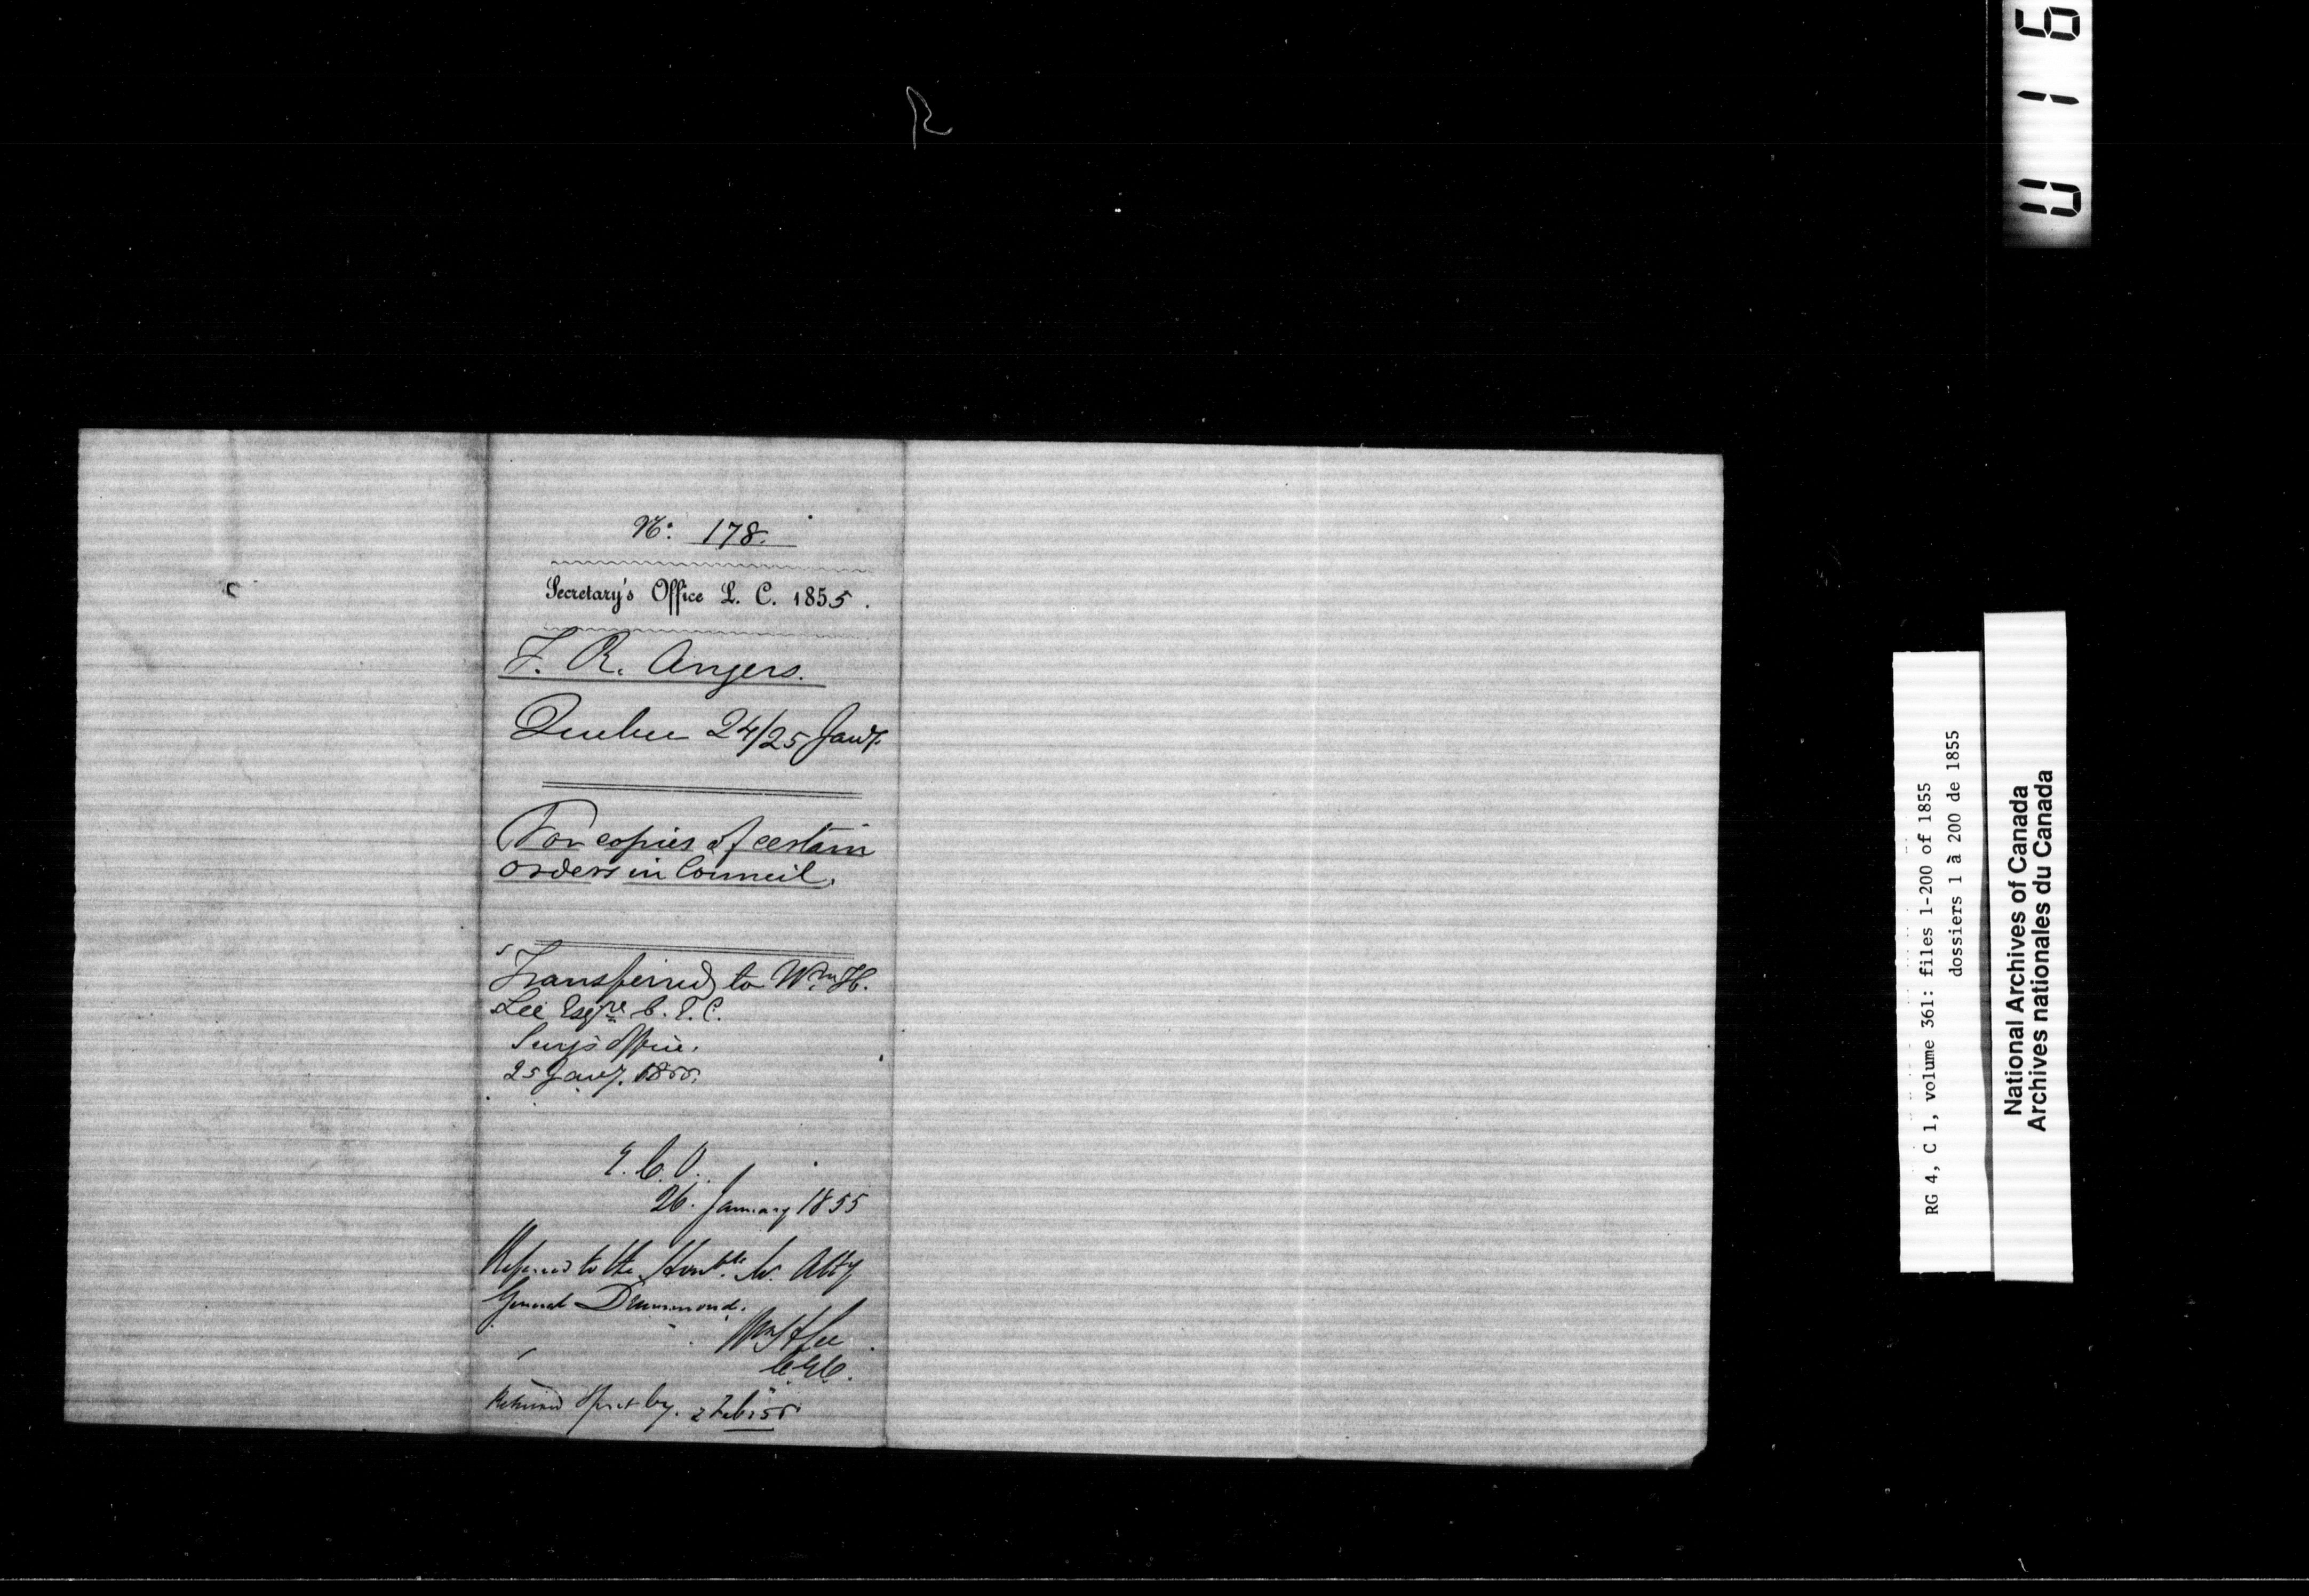 R
No. 178.
Secretary's Office L. C. 1855.
F. R. Angers.
Quebec 24/25 Jany.
For copies of certain
orders in Council.
Transferred to Wm. H.
Lee Esqre C. E. C.
Secy's Office.
25 Jany. 1855.
E. C. O.
26. January 1855
Referred to the Honble. Mr. Atty
General Drummond.
Wm H Lee
C.E.C.
Returned 2 Feb: 55
RG 4, C 1, volume 361: files 1-200 of 1855
dossiers 1 à 200 de 1855
National Archives of Canada
Archives nationales du Canada